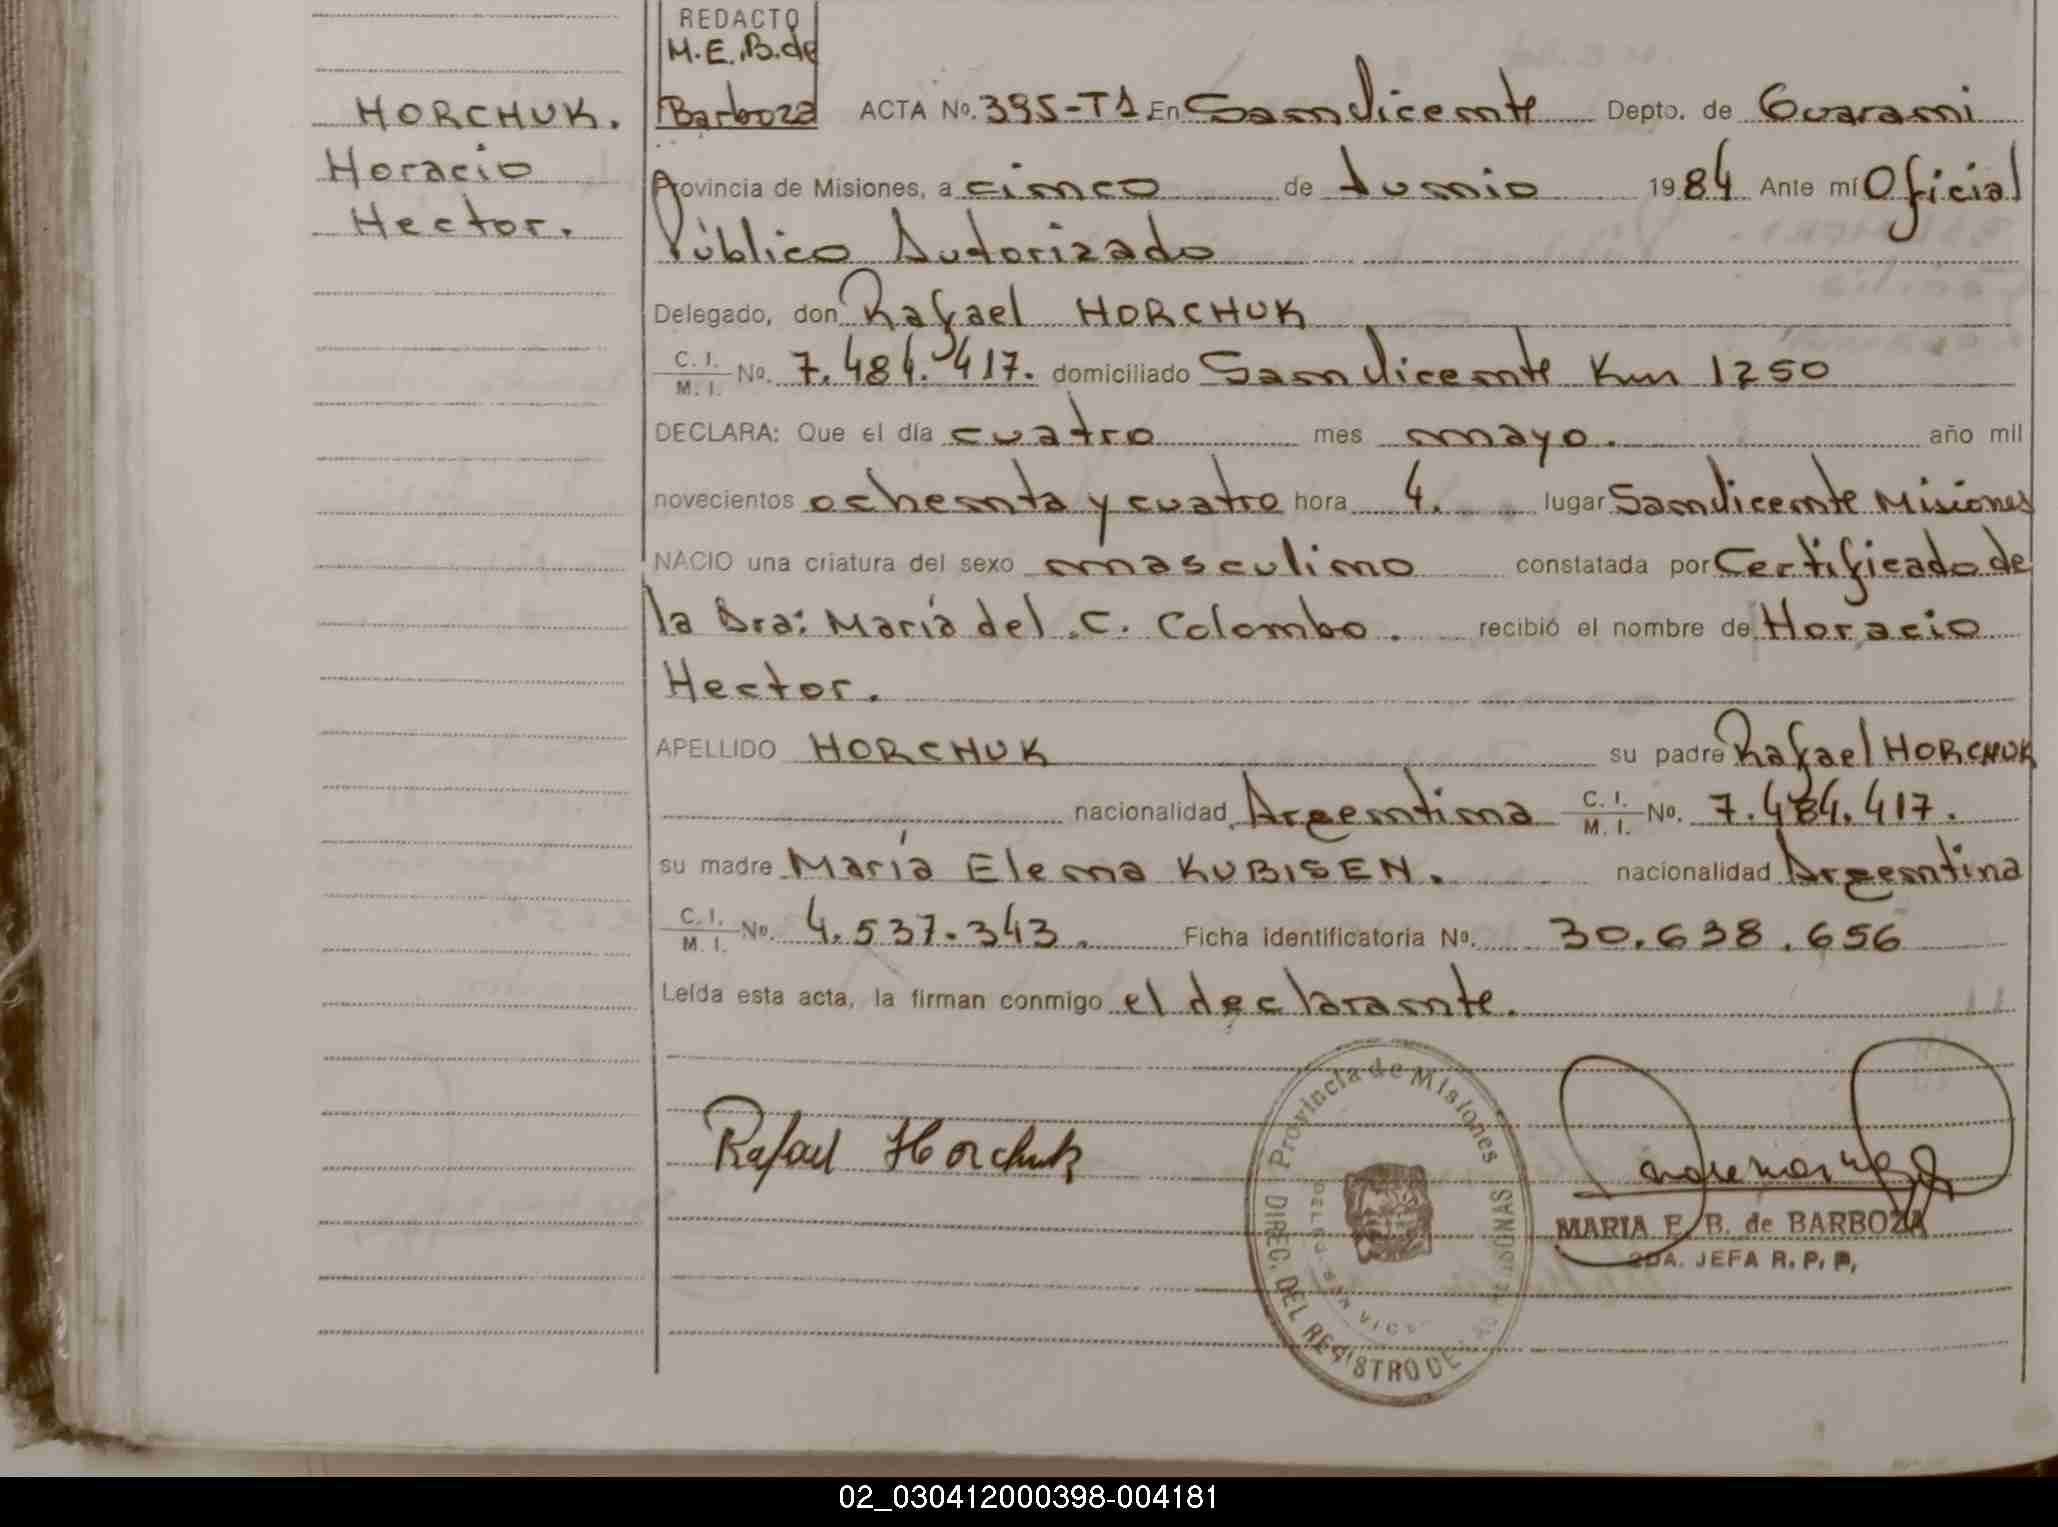 REDACTO
M.E.B.de
Barboza
HORCHUK.
Horacio
Hector.
ACTA Nº. 395-T1 En San Vicente Depto. de Guarani
Provincia de Misiones, a cinco de Junio 1984 Ante mí Oficial
Público Autorizado
Delegado, don Rafael HORCHUK
C. I. / M. I. Nº. 7.484.417. domiciliado San Vicente Km 1250
DECLARA: Que el día cuatro mes mayo. año mil
novecientos ochenta y cuatro hora 4. lugar San Vicente Misiones
NACIO una criatura del sexo masculino constatada por Certificado de
la Dra: María del C. Colombo. recibió el nombre de Horacio
Hector.
APELLIDO HORCHUK su padre Rafael HORCHUK
nacionalidad Argentina C. I. / M. I. Nº. 7.484.417.
su madre María Elena KUBISEN. nacionalidad Argentina
C. I. / M. I. Nº. 4.537.343. Ficha identificatoria Nº. 30.638.656
Leída esta acta, la firman conmigo el declarante.
Rafael Horchuk
Provincia de Misiones
DIREC. DEL REGISTRO DE PERSONAS
MARIA E. B. de BARBOZA
2DA. JEFA R. P. P.
02_030412000398-004181